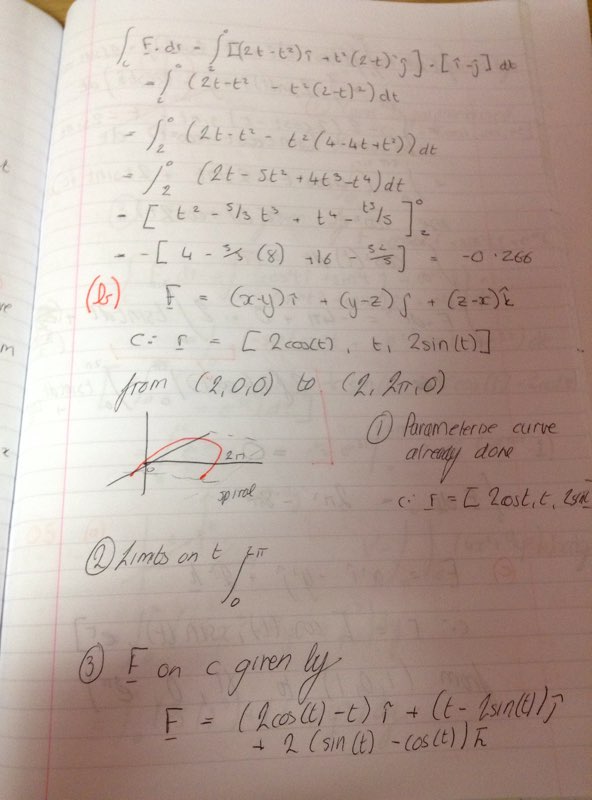 ∫_c F. dr = ∫_2^0 [(2t - t²)î + t²(2-t)²ĵ] - [î-ĵ] dt
= ∫_2^0 (2t - t² - t²(2-t)²) dt
= ∫_2^0 (2t - t² - t²(4 - 4t + t²)) dt
= ∫_2^0 (2t - 5t² + 4t³ - t⁴) dt
= [ t² - 5/3 t³ + t⁴ - t⁵/5 ]_2^0
= -[ 4 - 5/3 (8) + 16 - 32/5 ] = -0.266
(b) F = (x-y)î + (y-z)ĵ + (z-x)k̂
C: r = [ 2cos(t), t, 2sin(t)]
from (2,0,0) to (2, 2π, 0)
① Parameterise curve
already done
0
2π
spiral
C: r = [ 2cost, t, 2sin
② Limits on t ∫_0^π
③ F on c given by
F = (2cos(t) - t) î + (t - 2sin(t))ĵ
+ 2 (sin(t) - cos(t)) k̂